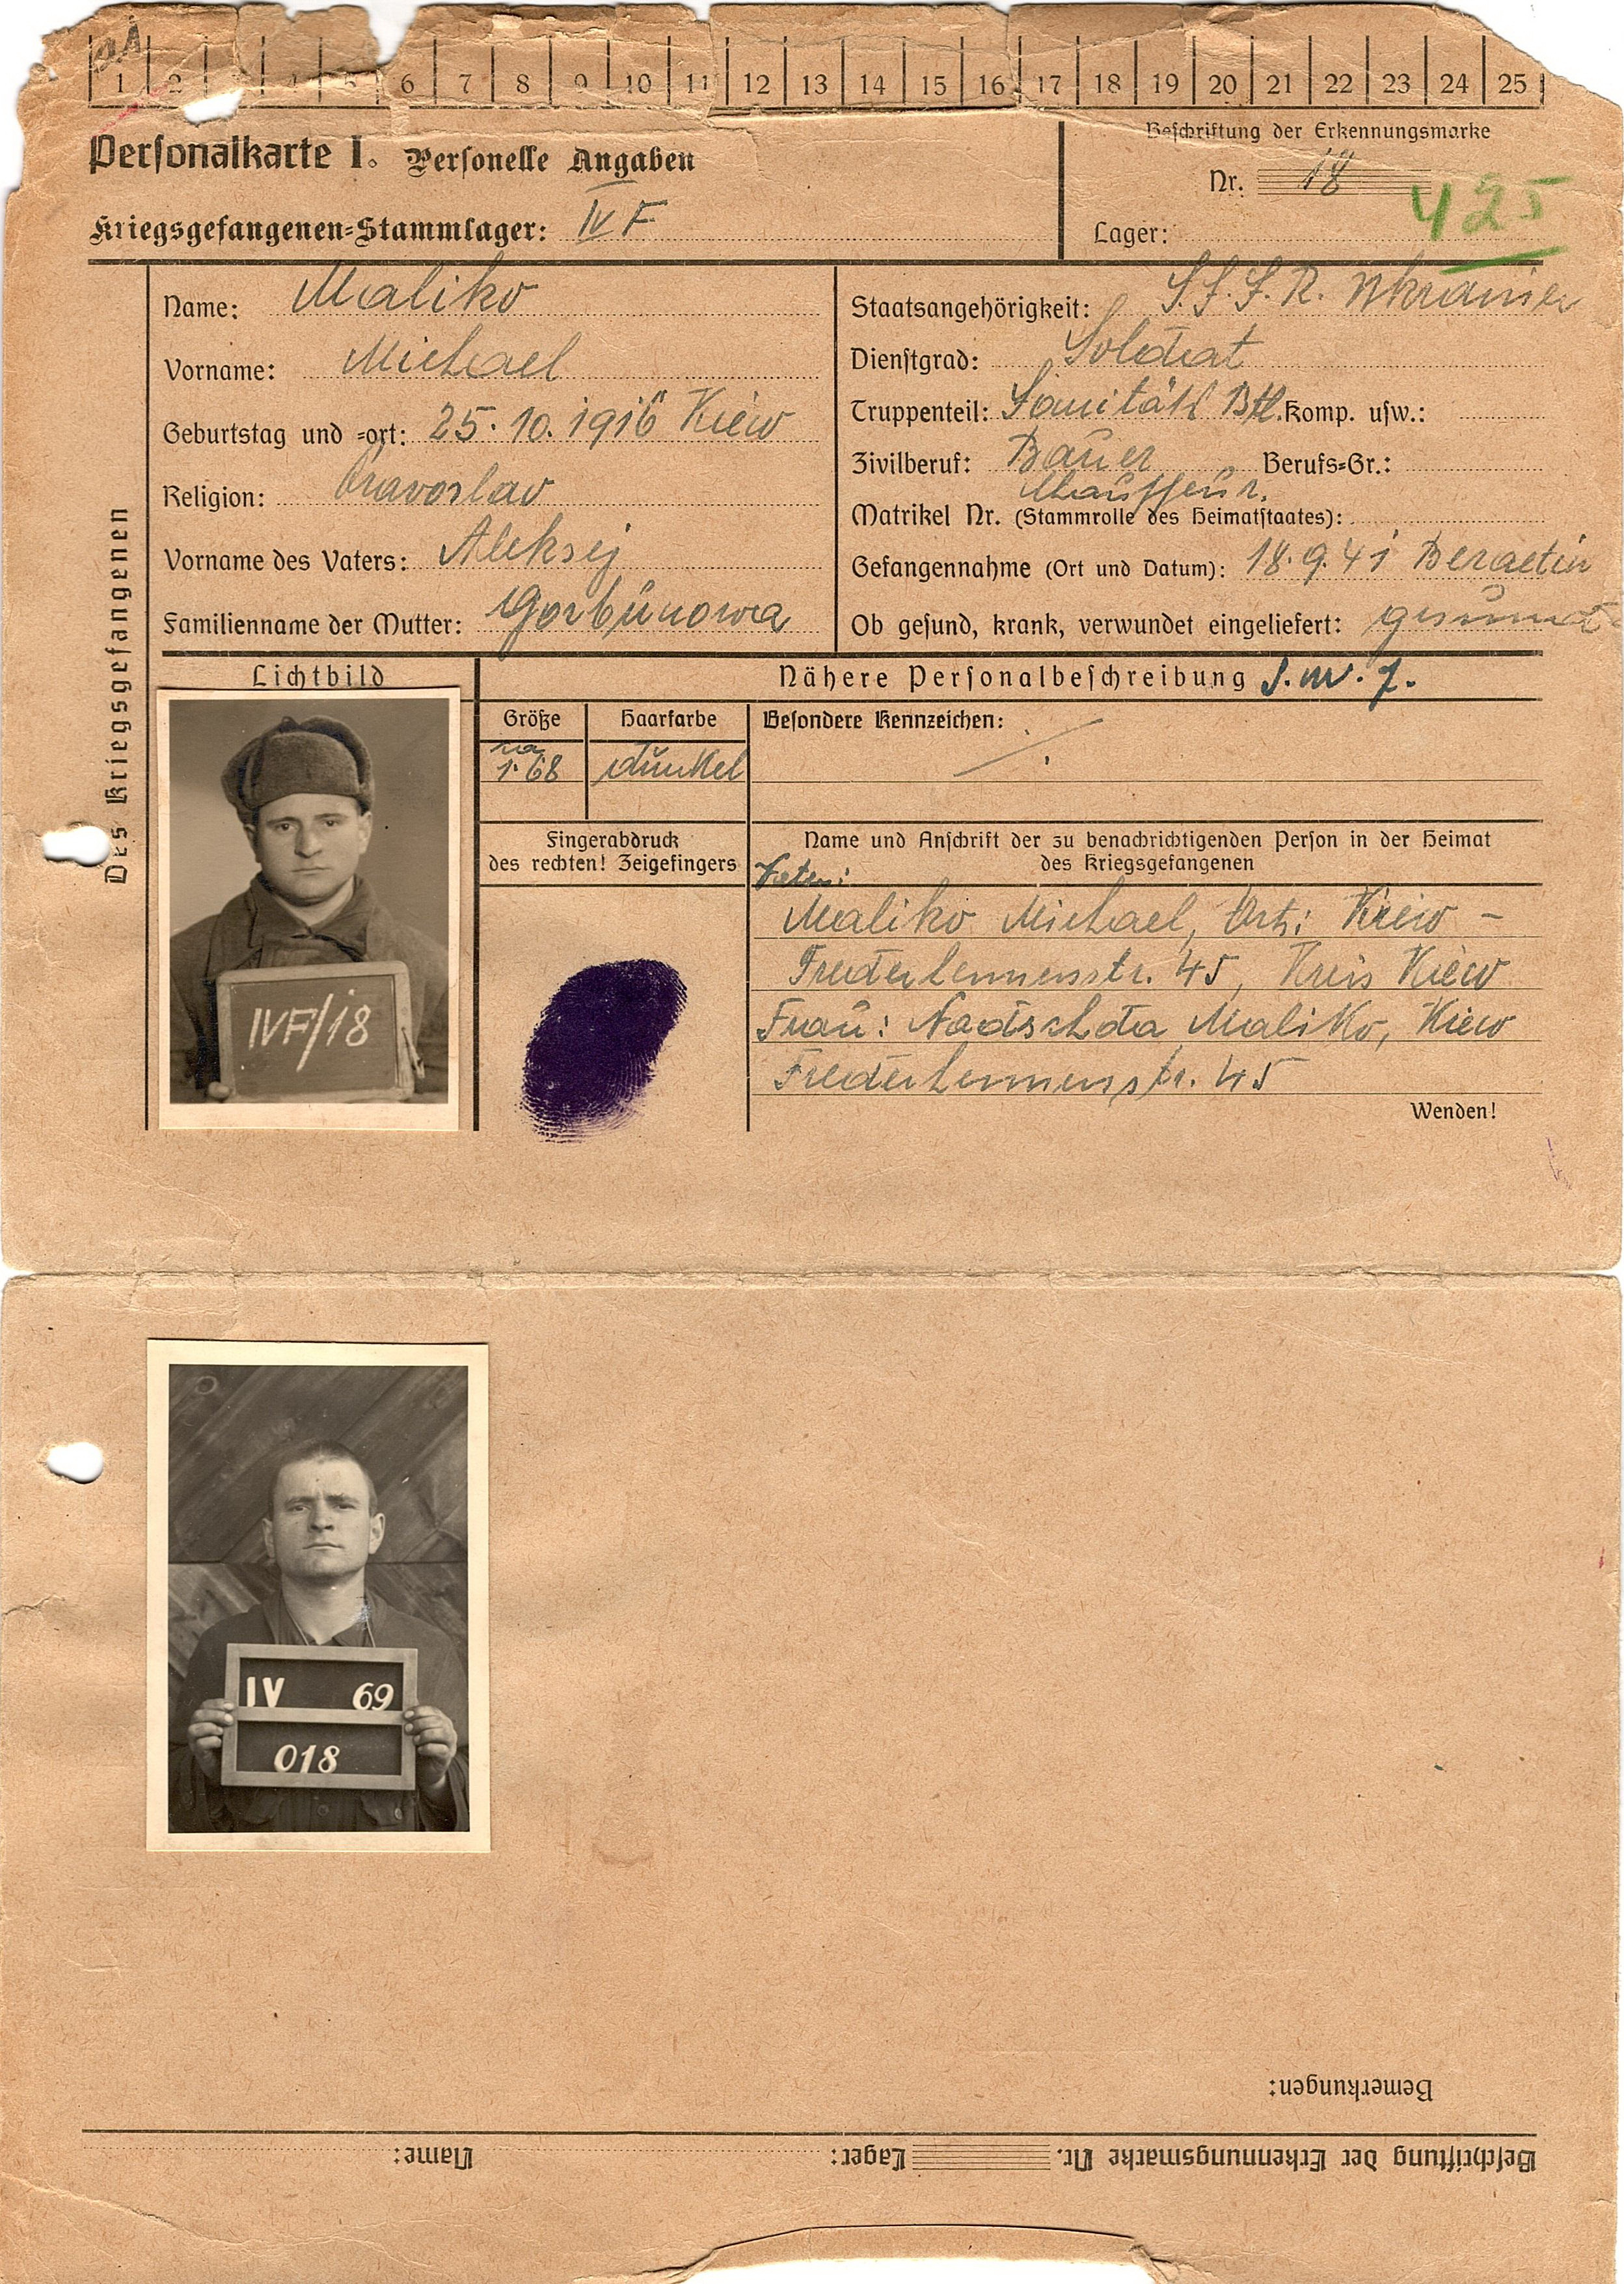 1 2 3 4 5 6 7 8 9 10 11 12 13 14 15 16 17 18 19 20 21 22 23 24 25
Personalkarte I. Personelle Angaben
Beschriftung der Erkennungsmarke
Nr. 18
425
Kriegsgefangenen-Stammlager: IV F
Lager:
Des Kriegsgefangenen
Name: Maliko
Vorname: Michael
Geburtstag und -ort: 25. 10. 1916 Kiew
Religion: Pravoslav
Vorname des Vaters: Aleksej
Familienname der Mutter: Gorbunowa
Staatsangehörigkeit: S.S.S.R. Ukrainer
Dienstgrad: Soldat
Truppenteil: Sanitäts Btl. Komp. usw.:
Zivilberuf: Bauer Berufs-Gr.:
Chauffeur.
Matrikel Nr. (Stammrolle des Heimatstaates):
Gefangennahme (Ort und Datum): 18.9.41
Ob gesund, krank, verwundet eingeliefert: gesund
Lichtbild
Nähere Personalbeschreibung
Größe
Haarfarbe
Besondere Kennzeichen:
1.68
dunkel
Fingerabdruck
des rechten! Zeigefingers
Name und Anschrift der zu benachrichtigenden Person in der Heimat
des Kriegsgefangenen
Vater:
Maliko Michael, Ort: Kiew -
45, Kreis Kiew
Frau: Nadschda Maliko, Kiew
45
Wenden!
IVF/18
IV 69
018
Bemerkungen:
Beschriftung der Erkennungsmarke Nr. Lager: Name: